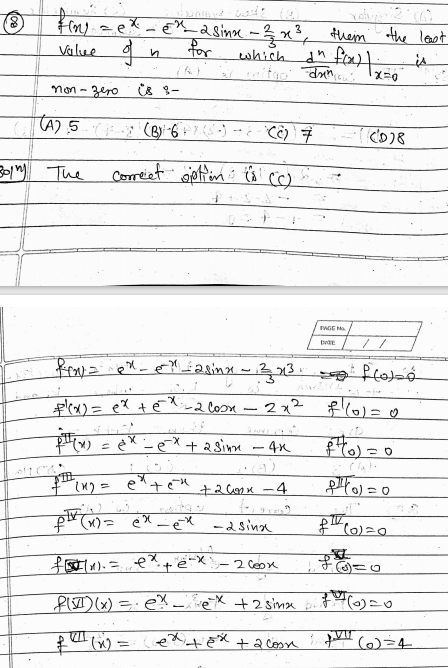 (8) f(x) = e^x - e^-x - 2sinx - 2/3 x^3, them the least
value of n for which d^n/dx^n f(x)|x=0 is
non-zero is :-
(A) 5 (B) 6 (C) 7 (D) 8
Sol^n) The correct option is (C)
PAGE No.
DATE / /
f(x) = e^x - e^-x - 2sinx - 2/3 x^3 f(0)=0
f'(x) = e^x + e^-x - 2cosx - 2x^2 f'(0) = 0
f^II(x) = e^x - e^-x + 2sinx - 4x f^II(0) = 0
f^III(x) = e^x + e^-x + 2cosx - 4 f^II(0) = 0
f^IV(x) = e^x - e^-x - 2sinx f^IV(0) = 0
f(x) = e^x + e^-x - 2cosx f(0) = 0
f(VI)(x) = e^x - e^-x + 2sinx f^VI(0) = 0
f^VII(x) = e^x + e^-x + 2cosx f^VII(0) = 4